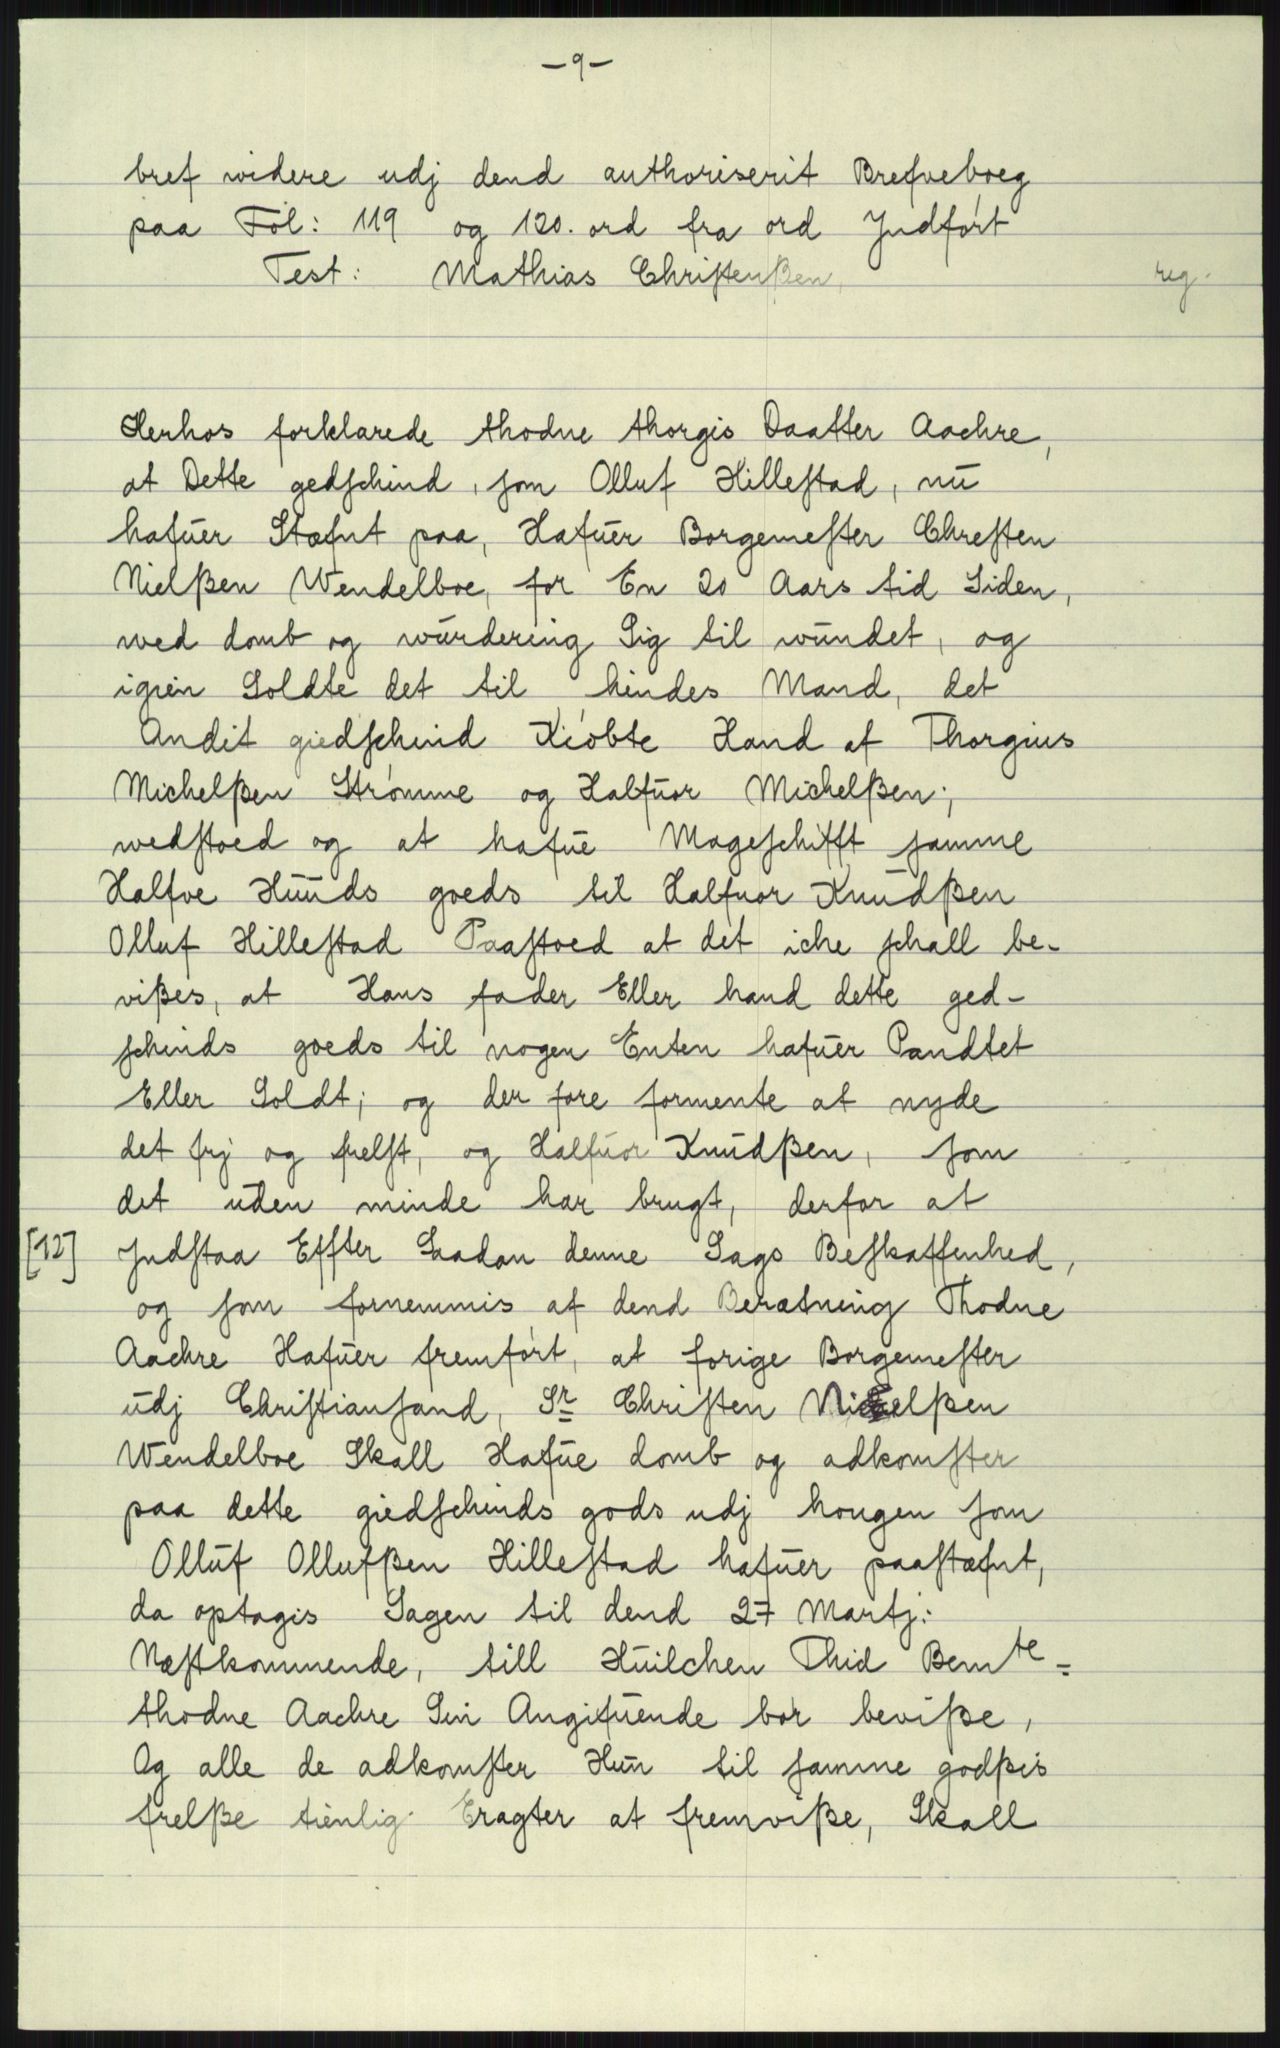 -9-
bref widere udj dend authoriserit Brefveboeg
paa Fol: 119 og 120. ord fra ord Jndført
Test: Mathias Christenßen reg.
Herhos forklarede thodne thorgis Daatter Aachre,
at Dette gedschind, som Olluf Hillestad, nu
hafuer Stæfnt paa, Hafuer Borgemester Chresten
Nielßen Wendelboe, for En 20 Aars tid Siden,
wed domb og wurdering Sig til wundet, og
igien Soldte det til hindes Mand, det
Andit giedschind Kiøbte Hand af Thorgius
Michelßen Strømme og Halfuor Michelßen;
wedstoed og at hafue Mageschifft samme
Halfve Huuds goeds til Halfuor Knudßen
Olluf Hillestad Paastoed at det iche schall be-
vißes, at Hans fader Eller hand dette ged-
schinds goeds til nogen Enten hafuer Pandtet
Eller Soldt; og der fore formente at nyde
det frj og frelst, og Halfuor Knudßen, som
det uden minde har brugt, derfor at
[12] Jndstaa Effter Saadan denne Sags Beskaffenhed,
og som fornemmis af dend Beretning Thodne
Aachre Hafuer fremført, at forige Borgemester
udj Christiansand, Sr Christen Nielßen
Wendelboe Skall Hafue domb og adkomster
paa dette giedschinds gods udj hougen som
Olluf Ollufßen Hillestad hafuer paastæfnt,
da optagis Sagen til dend 27 Martj:
Næstkommende, till Huilchen Thid Bemte=
thodne Aachre Sin Angifuende bør beviße,
Og alle de adkomster Hun til samme godßis
frelße tienlig Eragter at fremviße, Skall